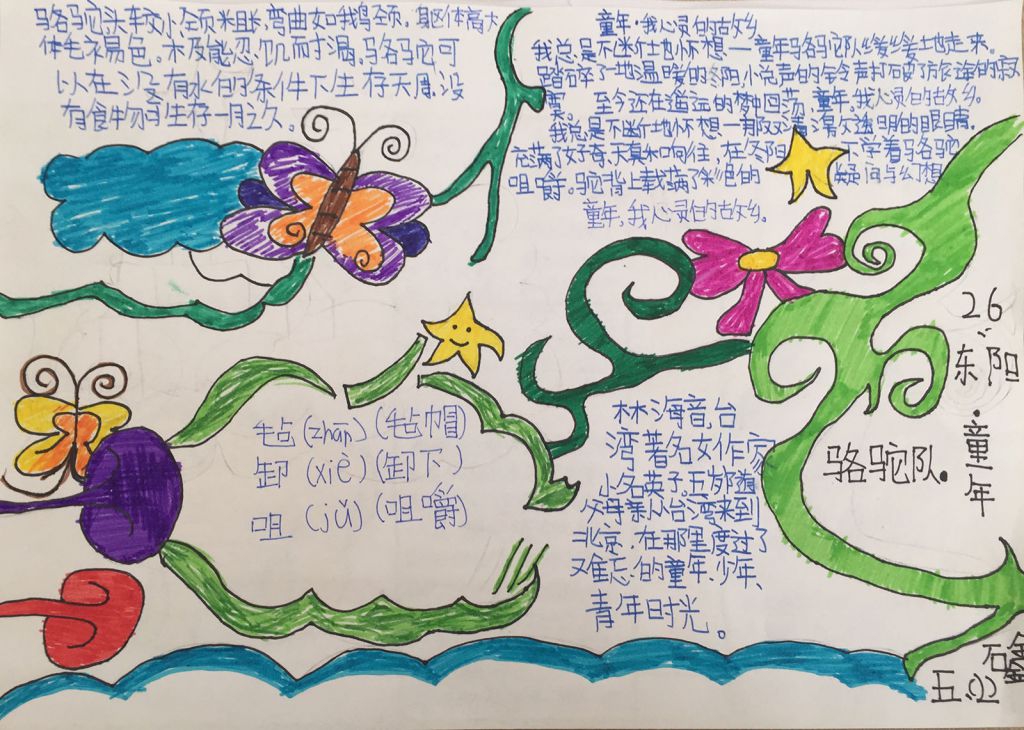 骆驼头较小,颈粗长,弯曲如鹅颈。躯体高大
体毛褐色。不及能忍饥而寸渴。骆驼可
以在没有水的条件下生存天周,没
有食物可生存一月之久。
童年·我心灵的故乡
我总是不断地怀想一童年骆驼队缓缓地走来。
踏碎了一地温暖的冬阳,声的铃声打破了旅途的寂
寞。至今还在遥远的梦中回荡,童年,我心灵的故乡。
我总是不断地怀想一那双清澈透明的眼睛。
充满了好奇、天真和向往,在冬阳下学着骆驼
咀嚼。驼背上载满了彩色的疑问与幻想
童年,我心灵的故乡。
毡(zhān)(毡帽)
卸(xiè)(卸下)
咀(jǔ)(咀嚼)
林海音,台
湾著名女作家
小名英子。五岁随
父母亲从台湾来到
北京,在那里度过了
难忘的童年、少年、
青年时光。
26
东阳·童年
骆驼队
石
五.(2)